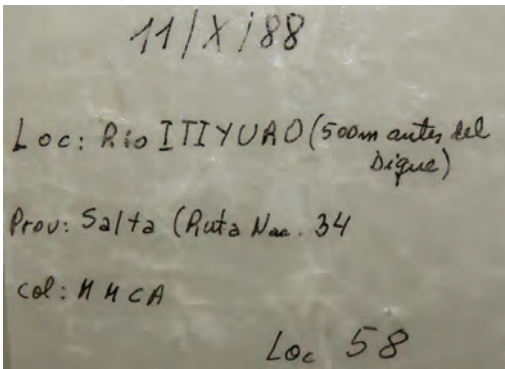 11/X/88
Loc: Rio ITIYURO (500m antes del
Dique)
Prov: Salta (Ruta Nac. 34
col: MMCA
Loc 58